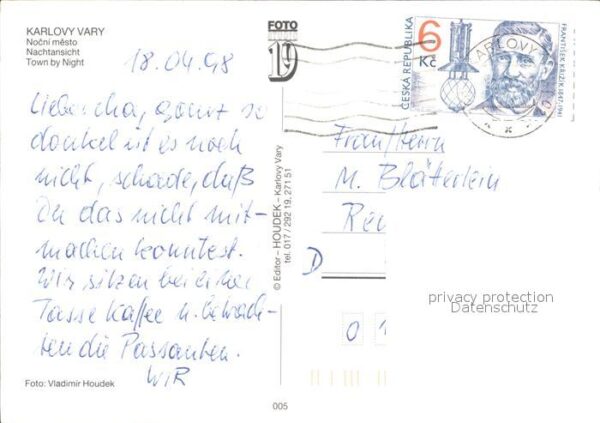 KARLOVY VARY
Noční město
Nachtansicht
Town by Night
18.04.98
Liebe cha, ganz so
dunkel ist es noch
nicht, schade, daß
Du das nicht mit-
machen konntest.
Wir sitzen bei einer
Tasse Kaffee u. betrach-
ten die Passanten.
WIR
Foto: Vladimír Houdek
005
FOTO
© Editor – HOUDEK – Karlovy Vary
tel. 017 / 292 19, 271 51
ČESKÁ REPUBLIKA
6
Kč
FRANTIŠEK KŘIŽÍK (1847-1941)
KARLOVY
Frau/Herrn
M. Blätterlein
Re
D
0 1
privacy protection
Datenschutz